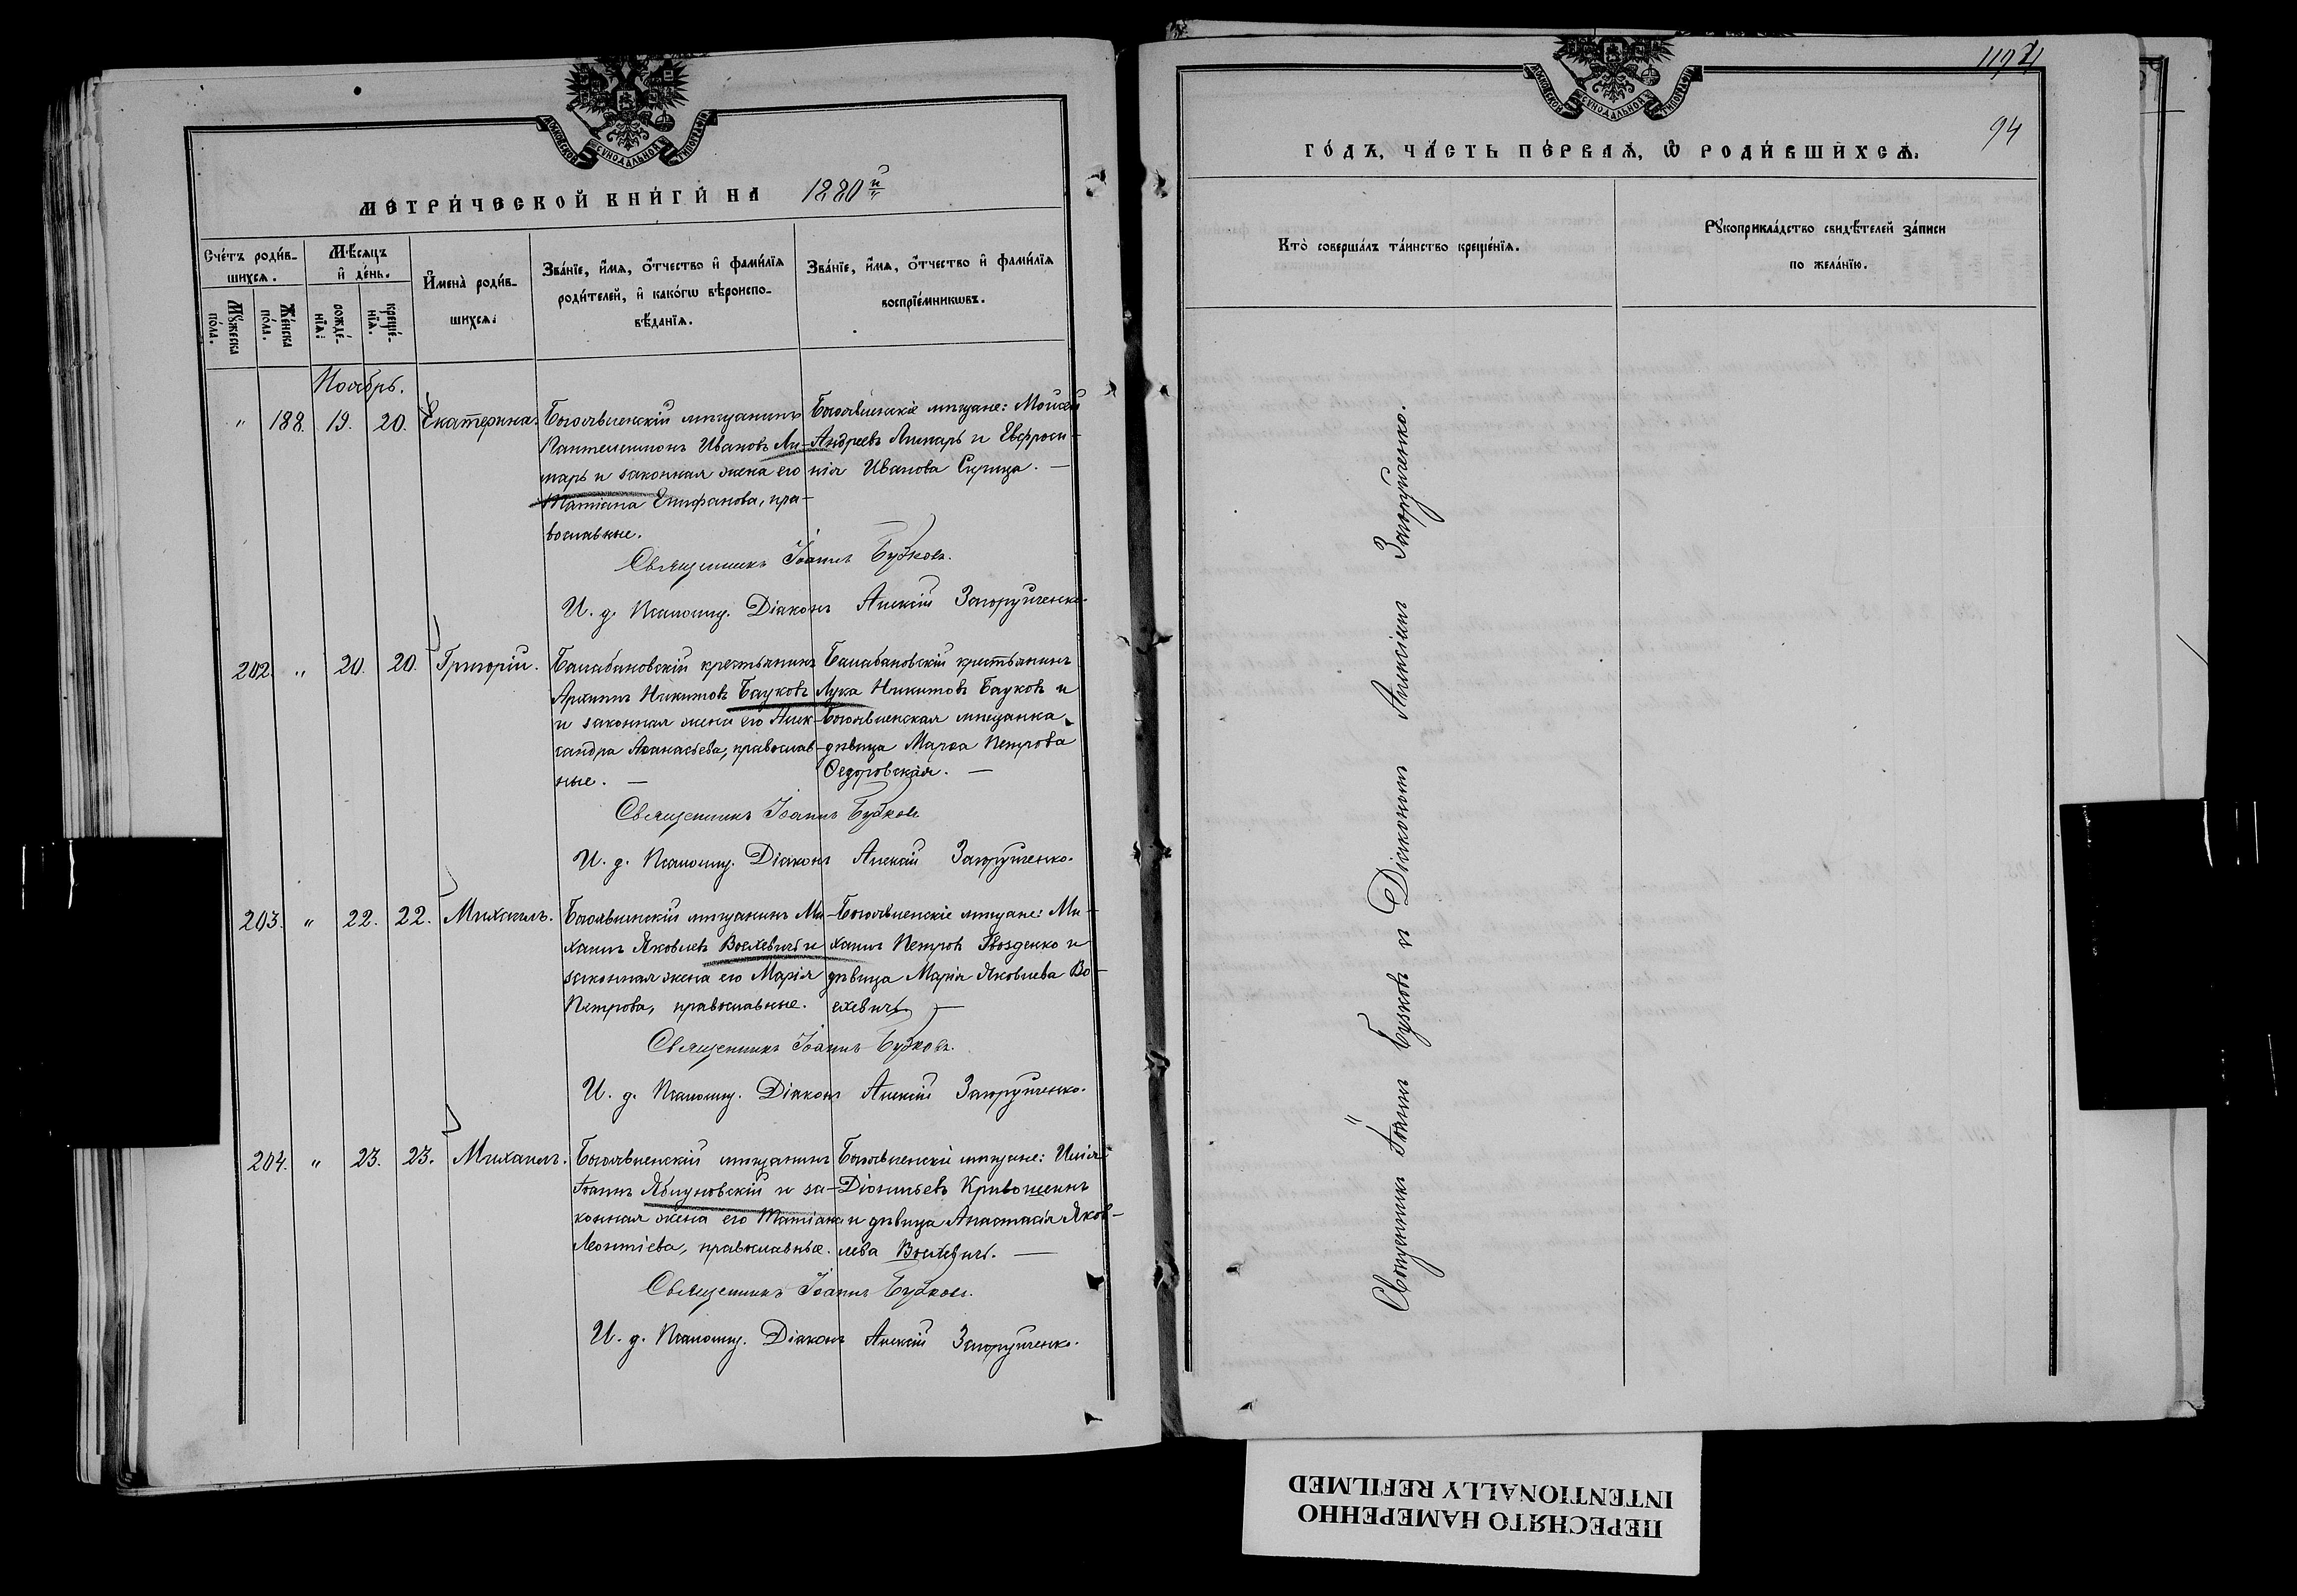 МОСКОВСКОЙ СѴНОДАЛЬНОЙ ТИПОГРАФІИ
МЕТРИ́ЧЕСКОЙ КНИ́ГИ НА 1880й
Сче́тъ роди́в-
шихсѧ.
Мѣ́сѧцъ
и҆ де́нь.
И҆мена̀ роди́в-
шихсѧ.
Зва́нїе, и҆́мѧ, ѻ҆́тчество и҆ фами́лїѧ
роди́телей, и҆ како́гѡ вѣроиспо-
вѣ́данїѧ.
Зва́нїе, и҆́мѧ, ѻ҆́тчество и҆ фами́лїѧ
воспрїе́мникѡвъ.
Мꙋ́жеска
по́ла.
Же́нска
по́ла.
рожде́-
нїѧ.
креще́-
нїѧ.
Ноябрь.
" 188. 19. 20. Екатерина.
Богоявленскій мѣщанинъ
Пантелеимонъ Ивановъ Ли-
марь и законная жена его
Татіана Епифанова, пра-
вославные.
Богоявленскіе мѣщане: Моисей
Андреевъ Лимарь и Евфроси-
нія Иванова Скрица. —
Священникъ Іоаннъ Бузковъ.
И. д. Псаломщ. Діаконъ Алексій Загоруйченко.
202. " 20. 20. Григорій.
Балабановскій крестьянинъ
Архипъ Никитовъ Бауковъ
и законная жена его Алек-
сандра Аѳанасьева, православ-
ные. —
Балабановскій крестьянинъ
Лука Никитовъ Бауковъ и
Богоявленская мѣщанка
дѣвица Марѳа Петрова
Ѳедоровская. —
Священникъ Іоаннъ Бузковъ
И. д. Псаломщ. Діаконъ Алексій Загоруйченко.
203. " 22. 22. Михаилъ.
Богоявленскій мѣщанинъ Ми-
хаилъ Яковлевъ Воелевичъ и
законная жена его Марія
Петрова, православные.
Богоявленскіе мѣщане: Ми-
хаилъ Петровъ Гвозденко и
дѣвица Марія Яковлева Во-
елевичъ. —
Священникъ Іоаннъ Бузковъ.
И. д. Псаломщ. Діаконъ Алексій Загоруйченко.
204. " 23. 23. Михаилъ.
Богоявленскій мѣщанинъ
Іоаннъ Яблуновскій и за-
конная жена его Татіана
Леонтіева, православные.
Богоявленскіе мѣщане: Илія
Діонисьевъ Кривошеинъ
и дѣвица Анастасія Яков-
лева Воелевичъ. —
Священникъ Іоаннъ Бузковъ.
И. д. Псаломщ. Діаконъ Алексій Загоруйченко.
МОСКОВСКОЙ СѴНОДАЛЬНОЙ ТИПОГРАФІИ
94
ГО́ДЪ, ЧА́СТЬ ПЕ́РВАѦ, Ѡ҆ РОДИ́ВШИХСѦ.
Кто̀ соверша́лъ та́инство креще́нїѧ.
Рꙋкоприкла́дство свидѣ́телей за́писи
по жела́нїю.
Священникъ Іоаннъ Бузковъ и Діакономъ Алексіемъ Загоруйченко.
ПЕРЕСНЯТО НАМЕРЕННО
INTENTIONALLY REFILMED